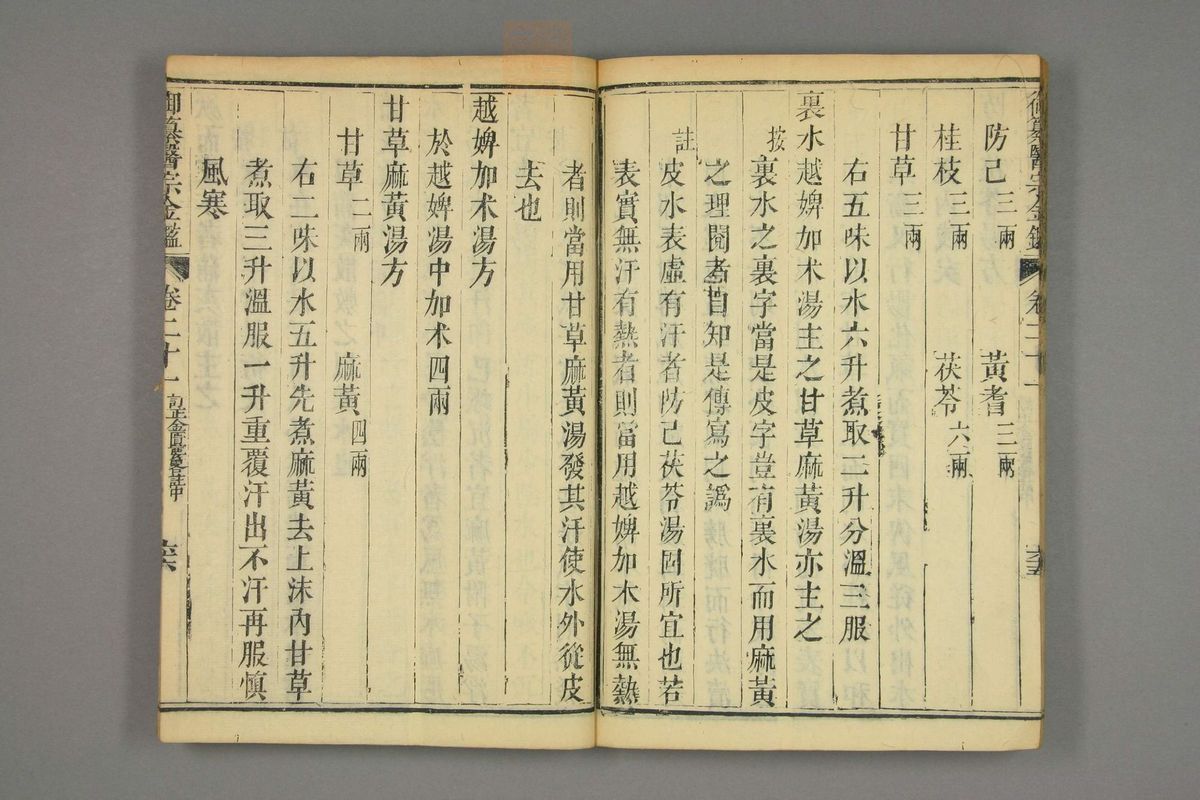 御纂醫宗金鑑 卷二十一
防己三兩 黃耆三兩
桂枝三兩 茯苓六兩
甘草二兩
右五味以水六升煮取二升分溫三服
裏水越婢加朮湯主之甘草麻黃湯亦主之
按裏水之裏字當是皮字豈有裏水而用麻黃
之理閱者自知是傳寫之譌
註皮水表虛有汗者防己茯苓湯固所宜也若
表實無汗有熱者則當用越婢加朮湯無熱
者則當用甘草麻黃湯發其汗使水外從皮
去也
越婢加朮湯方
於越婢湯中加朮四兩
甘草麻黃湯方
甘草二兩 麻黃四兩
右二味以水五升先煮麻黃去上沫內甘草
煮取三升溫服一升重覆汗出不汗再服慎
風寒
御纂醫宗金鑑 卷二十一 訂正金匱要畧註中